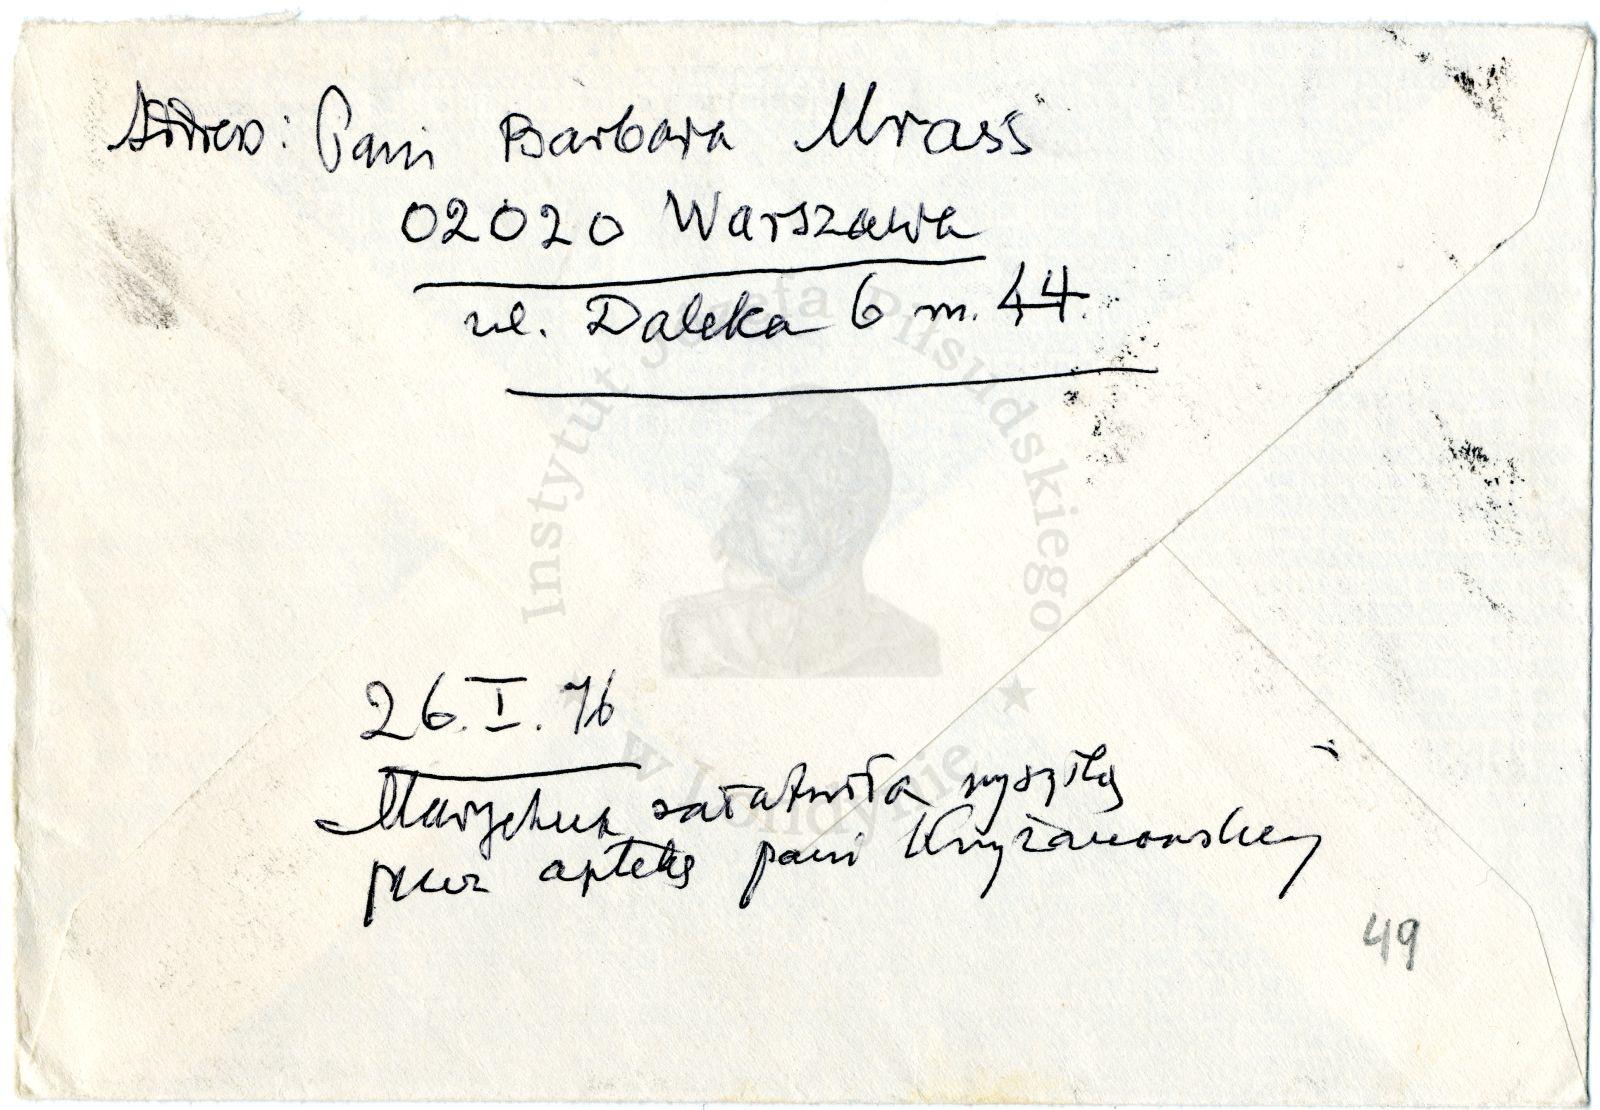 Adres: Pani Barbara Mrass
02020 Warszawa
ul. Daleka 6 m. 44.
26.I.76
załatwiła wysyłkę
przez aptekę pani Krzyżanowskiej
49
Instytut Józefa Piłsudskiego
w Londynie